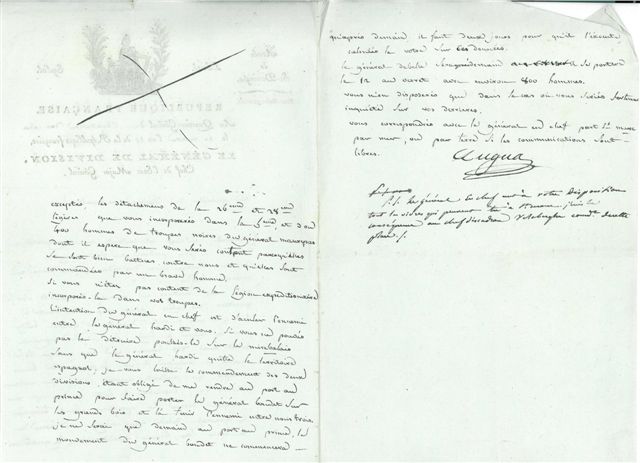 exceptés, les détachements de la 26ème et 28ème
légères que vous incorporerez dans la 5ème, et d'où
400 hommes de troupes noires du général maurepas
dont il espère que vous serez content parcequ'elles
se sont bien battues contre nous et qu'elles sont
commandées par un brave homme.
Si vous n'étes pas content de la Légion expéditionnaire
incorporés-la dans vos troupes.
L'intention du général en chef est d'acculer l'ennemi
entre le général hardi et vous. Si vous ne pouvés
pas le détruire poussés-le sur la mirebalais
sans que le général hardi quitte le territoire
espagnol; je vous laisse le commandement des deux
divisions, étant obligé de me rendre au port au
prince pour faire porter le général boudet sur
les grands bois et là l'ennemi entre nous trois.
je ne serai que demain au port au prince, les
mouvement du général boudet ne commencera
qu'après demain, il faut deux jours pour qu'il l'exécute
calculés le votre sur ces données.
le général debelle se portera
le 12 au verret avec environ 800 hommes.
vous n'en disposerés que dans le cas où vous seriés
inquiété sur vos derrieres.
vous correspondrés avec le général en chef par St. marc
par mer, ou par terre si les communications sont
libres.
Dugua
P.S. Le général en chef met à votre disposition
tout les vivres qui peuvent
au chef d'escadron comdt de cette
place /.
RÉPUBLIQUE FRANÇAISE.
LE GÉNÉRAL DE DIVISION,
Chef de l'État Major Général